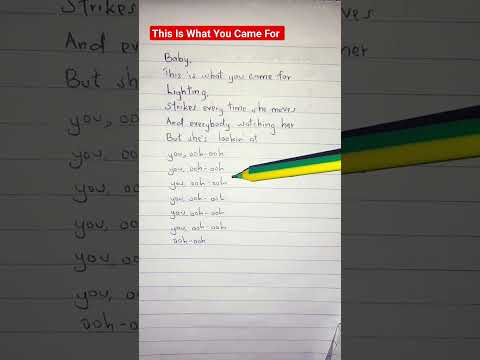 This Is What You Came For
Baby,
This is what you came for
Lighting,
Strikes every time she moves
And everybody watching her
But she's lookin at
you, ooh-ooh
you, ooh-ooh
you, ooh-ooh
you, ooh-ooh
you, ooh-ooh
you, ooh-ooh
ooh-ooh